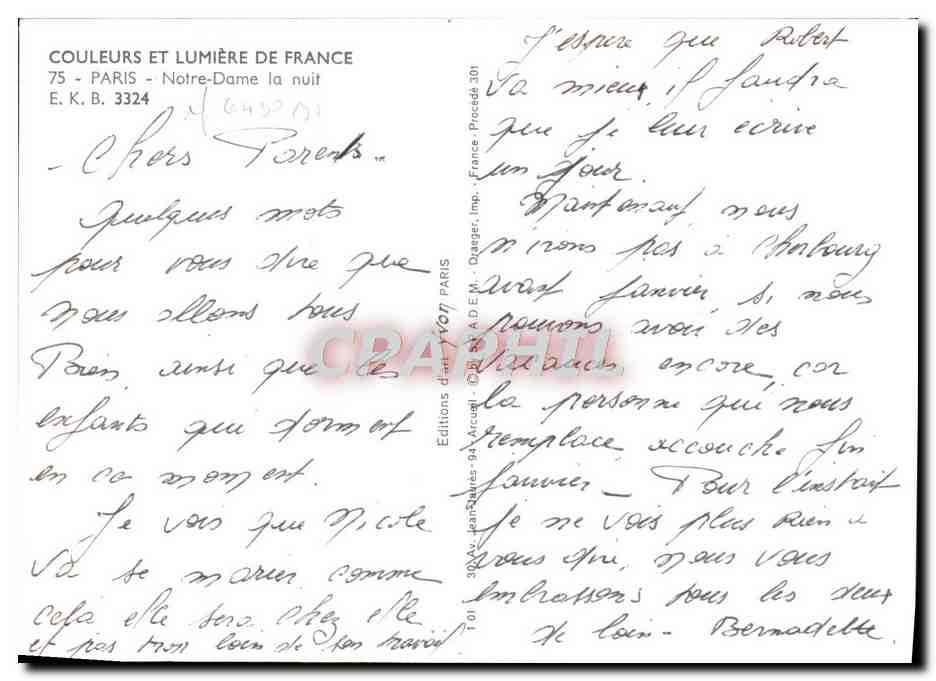 COULEURS ET LUMIÈRE DE FRANCE
75 - PARIS - Notre-Dame la nuit
E. K. B. 3324
- Chers Parents -
Quelques mots
pour vous dire que
nous allons tous
Bien, ainsi que les
enfants qui dorment
en ce moment.
Je vois que Nicole
va se marier comme
cela elle sera chez elle
et pas trop loin de son travail
Editions d'art yvon PARIS
T 01 30, Av. Jean-Jaurès - 94 Arcueil - © by S.P.A.D.E.M. - Draeger, Imp. - France - Procédé 301
J'espère que Robert
va mieux, il faudra
que je leur écrive
un jour.
Maintenant, nous
n'irons pas à Cherbourg
avant Janvier, si nous
pouvons avoir des
vacances encore, car
la personne qui nous
remplace accouche fin
Janvier - Pour l'instant
je ne vois plus Rien à
vous dire, nous vous
embrassons tous les deux
de loin - Bernadette.
CPAPHIL